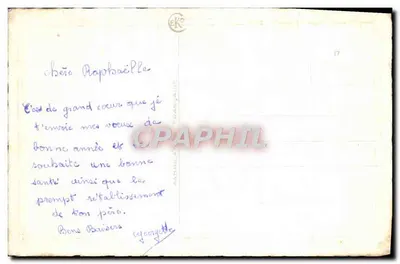 chère Raphaëlle
C'est de grand cœur que je
t'envoie mes vœux de
bonne année et
souhaite une bonne
santé ainsi que le
prompt rétablissement
de ton père.
Bons Baisers
Georgette
CPAPHIL